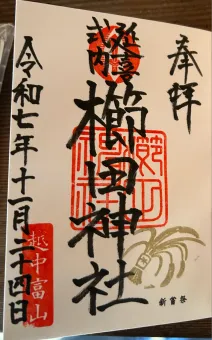 奉拝
延喜式内
櫛田神社
令和七年十一月二十四日
越中富山
新嘗祭